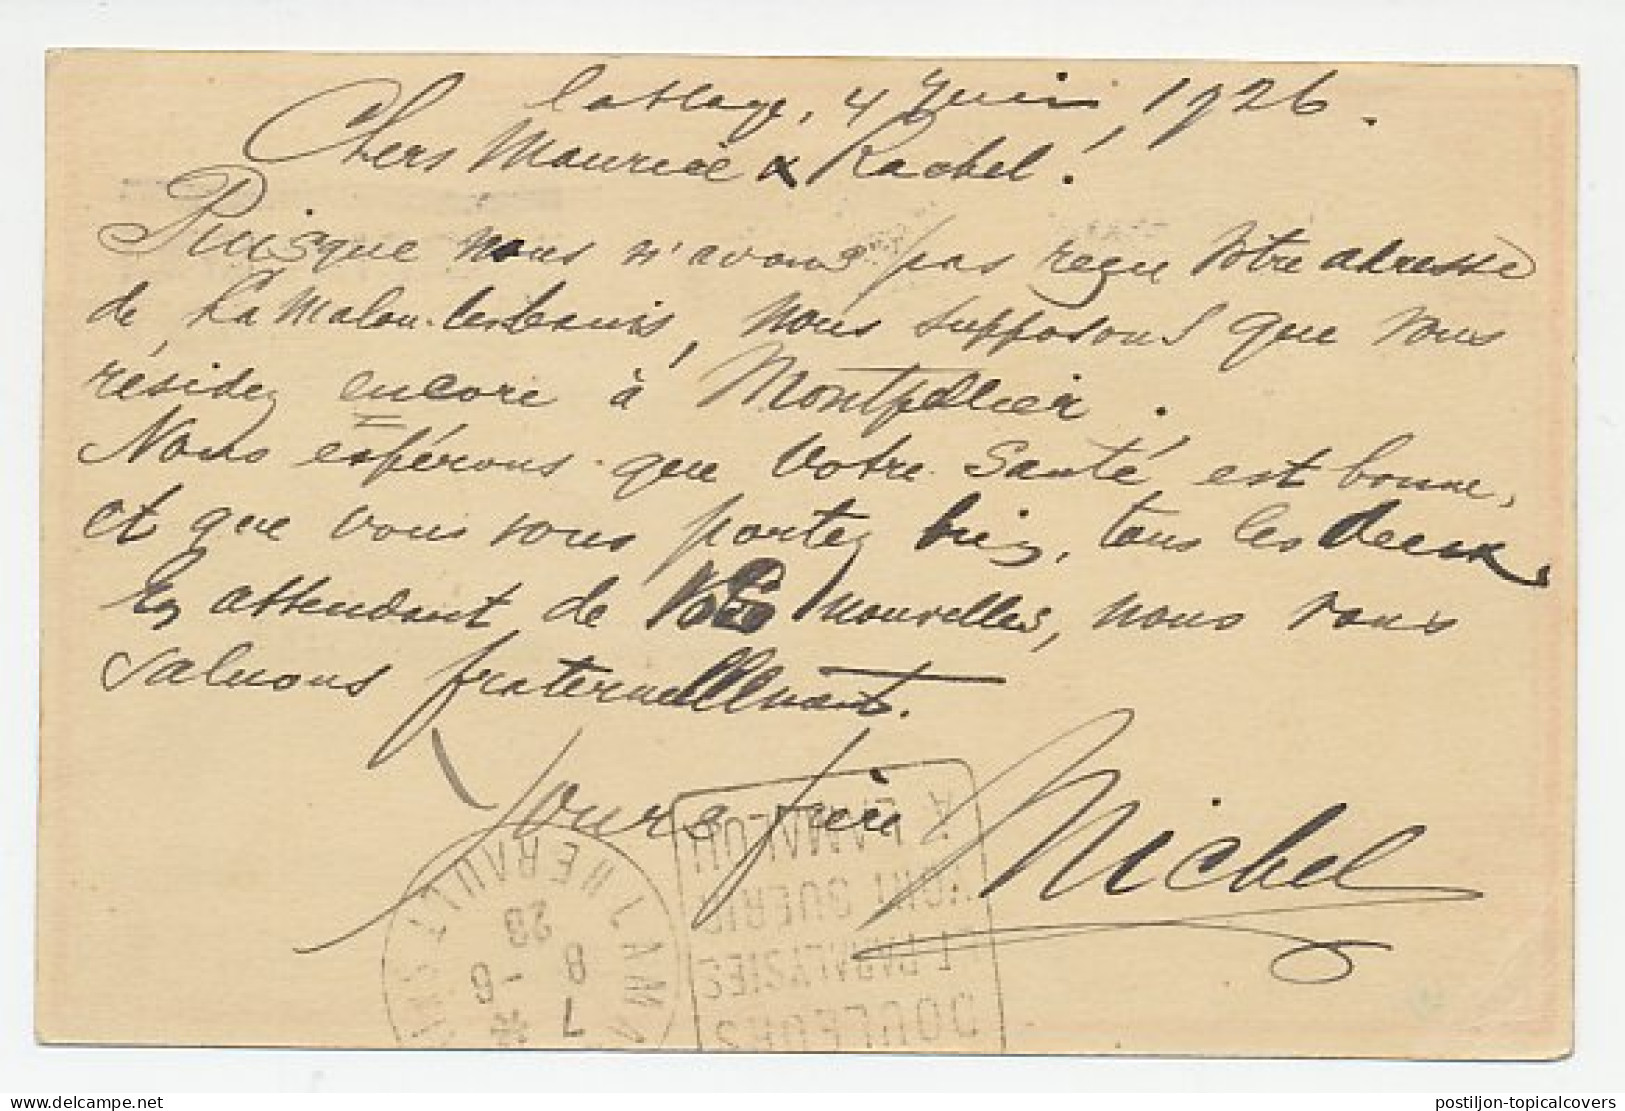 la Haye, 4 Juin 1926.
Chers Maurice & Rachel!
Puisque nous n'avons pas reçu Votre adresse
de La Malou-les-bains, nous supposons que vous
résidez encore à Montpellier.
Nous espérons que Votre Santé est bonne,
et que vous vous portez bien, tous les deux.
En attendant de Vos nouvelles, nous vous
saluons fraternellement.
Votre frère Michel
A LAMALOU
GUERIT
ET PARALYSIES
DOULEURS
LAMALOU HERAULT
7
8 -6
26
postiljon-topicalcovers